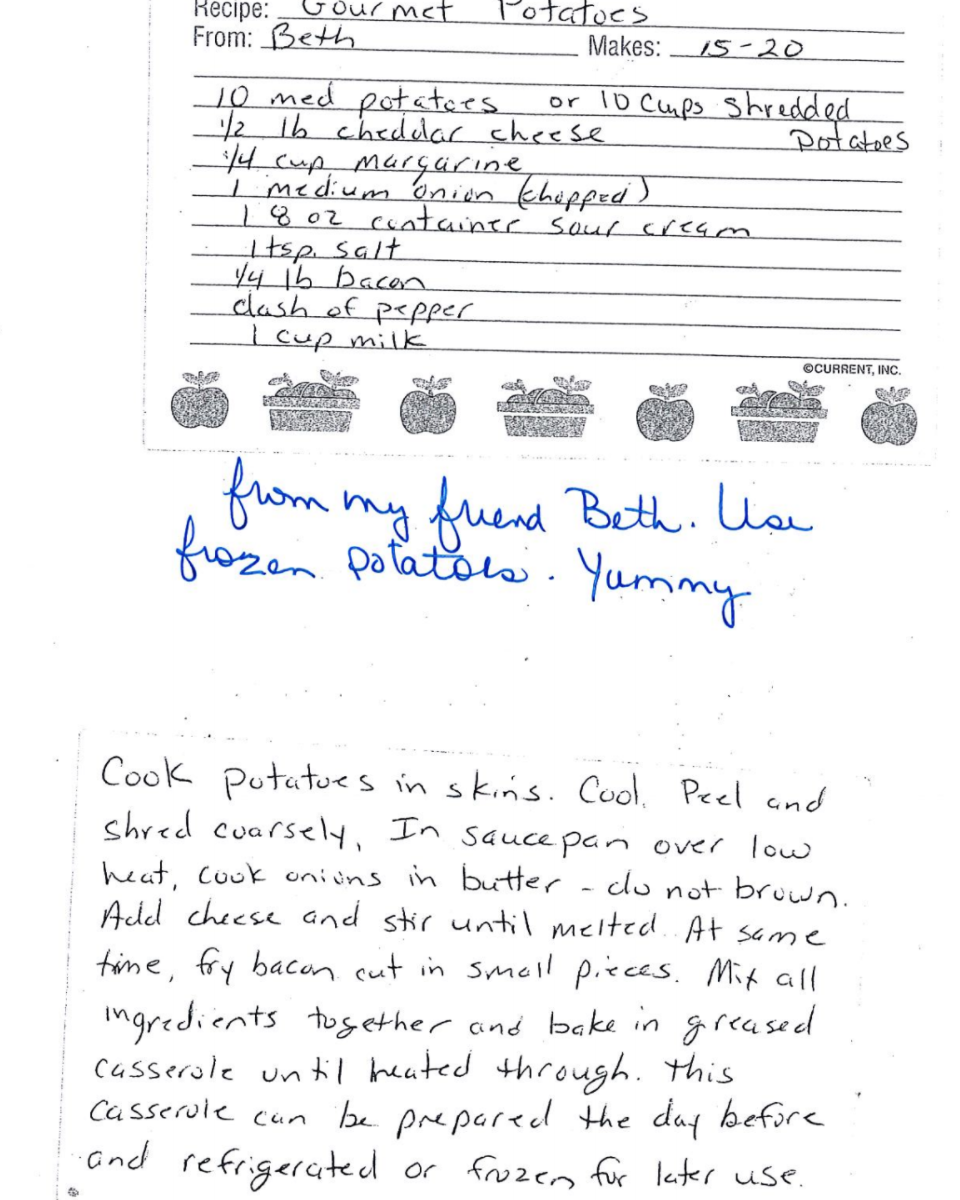 Recipe: Gourmet Potatoes
From: Beth Makes: 15-20
10 med potatoes or 10 Cups shredded
potatoes
1/2 lb cheddar cheese
1/4 cup margarine
1 medium onion (chopped)
1 8 oz container sour cream
1 tsp. salt
1/4 lb bacon
dash of pepper
1 cup milk
©CURRENT, INC.
from my friend Beth. Use
frozen potatoes. Yummy
Cook potatoes in skins. Cool. Peel and
shred coarsely. In saucepan over low
heat, cook onions in butter - do not brown.
Add cheese and stir until melted. At same
time, fry bacon cut in small pieces. Mix all
ingredients together and bake in greased
casserole until heated through. This
casserole can be prepared the day before
and refrigerated or frozen for later use.